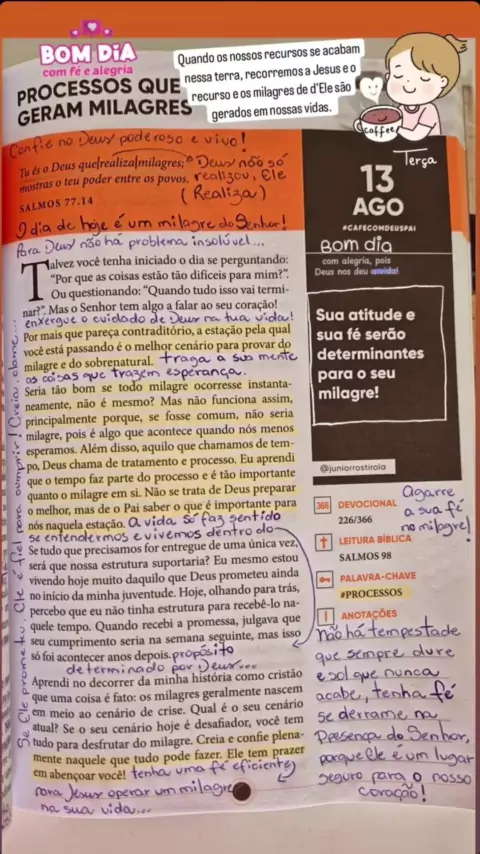 BOM DIA
com fé e alegria
Quando os nossos recursos se acabam
nessa terra, recorremos a Jesus e o
recurso e os milagres de d'Ele são
gerados em nossas vidas.
coffee
PROCESSOS QUE
GERAM MILAGRES
Confie no Deus poderoso e vivo!
Tu és o Deus que realiza milagres;
mostras o teu poder entre os povos.
SALMOS 77.14
Deus não só
realizou, Ele
(Realiza)
O dia de hoje é um milagre do Senhor!
Para Deus não há problema insolúvel...
Talvez você tenha iniciado o dia se perguntando:
"Por que as coisas estão tão difíceis para mim?".
Ou questionando: "Quando tudo isso vai termi-
nar?". Mas o Senhor tem algo a falar ao seu coração!
enxergue o cuidado de Deus na tua vida!
Por mais que pareça contraditório, a estação pela qual
você está passando é o melhor cenário para provar do
milagre e do sobrenatural. traga a sua mente
as coisas que trazem esperança.
Seria tão bom se todo milagre ocorresse instanta-
neamente, não é mesmo? Mas não funciona assim,
principalmente porque, se fosse comum, não seria
milagre, pois é algo que acontece quando nós menos
esperamos. Além disso, aquilo que chamamos de tem-
po, Deus chama de tratamento e processo. Eu aprendi
que o tempo faz parte do processo e é tão importante
quanto o milagre em si. Não se trata de Deus preparar
o melhor, mas de o Pai saber o que é importante para
nós naquela estação. A vida só faz sentido
se entendermos e vivemos dentro do
Se tudo que precisamos for entregue de uma única vez,
será que nossa estrutura suportaria? Eu mesmo estou
vivendo hoje muito daquilo que Deus prometeu ainda
no início da minha juventude. Hoje, olhando para trás,
percebo que eu não tinha estrutura para recebê-lo na-
quele tempo. Quando recebi a promessa, julgava que
seu cumprimento seria na semana seguinte, mas isso
só foi acontecer anos depois. propósito
determinado por Deus...
Aprendi no decorrer da minha história como cristão
que uma coisa é fato: os milagres geralmente nascem
em meio ao cenário de crise. Qual é o seu cenário
atual? Se o seu cenário hoje é desafiador, você tem
tudo para desfrutar do milagre. Creia e confie plena-
mente naquele que tudo pode fazer. Ele tem prazer
em abençoar você! tenha uma fé eficiente
para Jesus operar um milagre
na sua vida...
Se Ele prometeu, Ele é fiel para cumprir! Creia, clame...
Terça
13
AGO
#CAFECOMDEUSPAI
Bom dia
com alegria, pois
Deus nos deu
Sua atitude e
sua fé serão
determinantes
para o seu
milagre!
@juniorrostirola
366 DEVOCIONAL
226/366
LEITURA BÍBLICA
SALMOS 98
PALAVRA-CHAVE
#PROCESSOS
ANOTAÇÕES
Agarre
a sua fé
no milagre!
Não há tempestade
que sempre dure
e sol que nunca
acabe, tenha fé
se derrame na
Presença do Senhor,
porque Ele é um lugar
seguro para o nosso
coração!